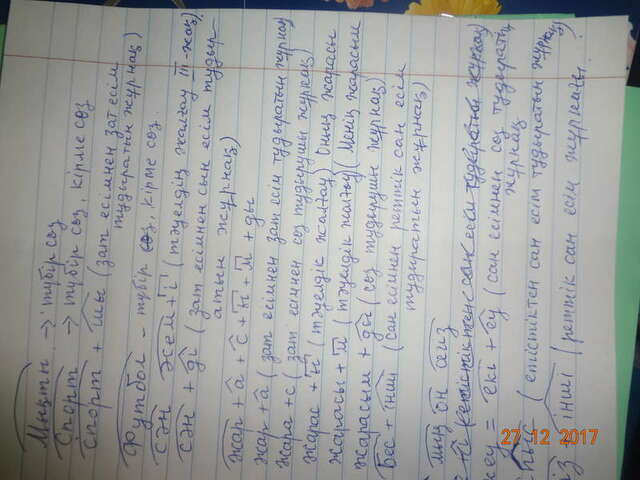 Мықты → түбір сөз
Спорт → түбір сөз, кірме сөз
спорт + шы (зат есімнен зат есім
тудыратын жұрнақ)
Футбол - түбір сөз, кірме сөз.
сән әсем + і (тәуелдік жалғау III-жақ)
сән + ді (зат есімнен сын есім тудыр
атын жұрнақ)
жар + а + с + ы + м + ды
жар + а (зат есімнен зат есім тудыратын жұрнақ)
жара + с (зат есімнен сөз тудырушы жұрнақ)
жарас + ы (тәуелдік жалғау) Оның жарасы
жарасы + м (тәуелдік жалғау) (Менің жарасым
жарасым + ды (сөз тудырушы жұрнақ)
Бес + інші (сан есімнен реттік сан есім
тудыратын жұрнақ)
мың он сегіз
екі + еу (сан есімнен сөз тудыратын
жұрнақ
(етістіктен сан есім тудыратын жұрнақ)
інші (реттік сан есім жұрнағы.
27 12 2017